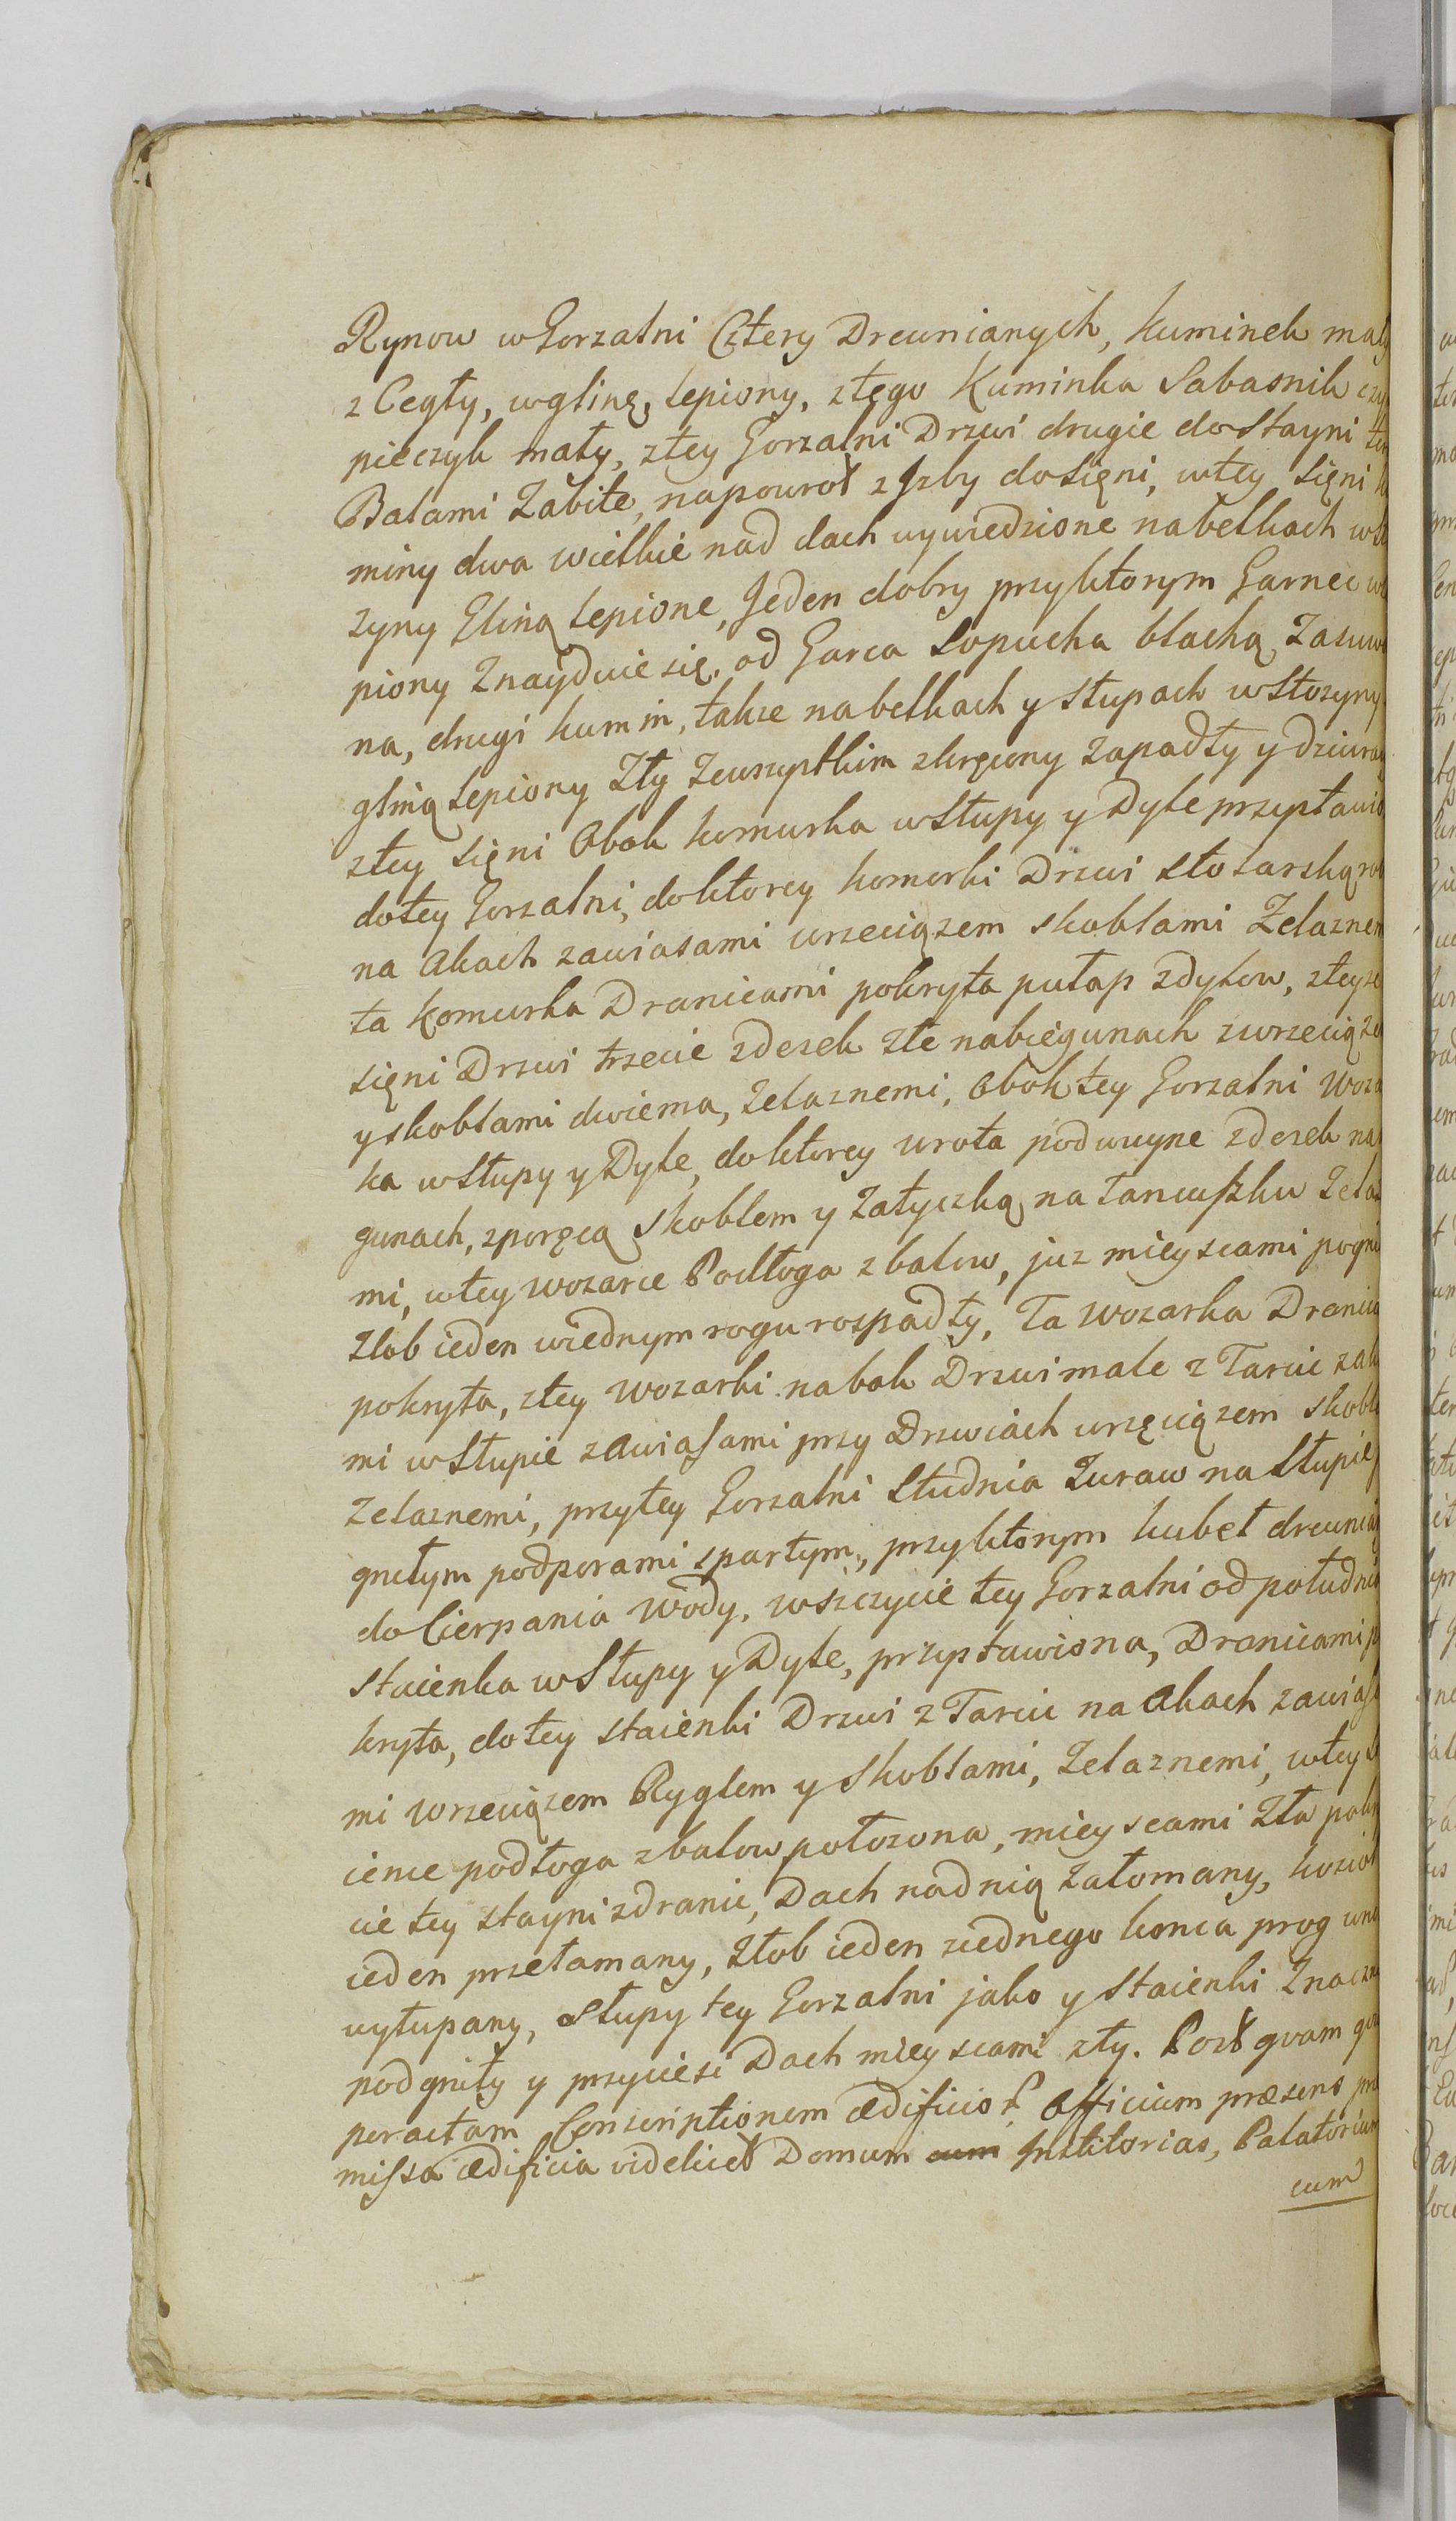 Rynow w Gorzalni Cztery Drewnianych, kuminek mały
z Cegły, w glinę, lepiony, z tego Kuminka Sabasnik czy
pieczyk mały, z tey Gorzalni Drzwi drugie do Stayni
Balami Zabite, napowrot z Jzby do Sięni, w tey Sięni
miny dwa wielkie nad dach wywiedzione na belkach
zyny Gliną lepione, Jeden dobry przy ktorym Garniec
piony Znayduie się, od Garca Lopucha blachą Zasuw
na, drugi kumin, takze na belkach y Słupach w Stozyny
gliną lepiony Zły Zewszystkim zkręcony zapadły y dziura
z tey Sięni Obok komurka w Słupy y Dyle przystawio
do tey Gorzalni, do ktorey komorki Drzwi stolarską
na Akach zawiasami wrzeciązem skoblami Zelaznem
ta Komurka Dranicami pokryta pułap z dylow, z tey ze
sięni Drzwi trzecie z desek złe na biegunach z wrzeciąze
y skoblami dwiema, Zelaznemi, Obok tey Gorzalni Woza
ka w Słupy y Dyle, do ktorey wrota podwuyne z desek na
gunach, z poręcą Skoblem y Zatyczką na Lancuszku Zelaz
mi, w tey wozarce Podłoga z balow, juz mieyscami pogni
Zlob ieden w iednym rogu rospadły, Ta Wozarka Dranica
pokryta, z tey Wozarki na bok Drzwi male z Tarcic
mi w Słupie zawiasami przy Drzwiach wrzęciązem Skobl
Zelaznemi, przy tey Gorzalni Studnia Zuraw na Słupie
gnetym podporami spartym, przy ktorym kubeł drewnia
do Cierpania Wody, w szczycie tey Gorzalni od południa
Staienka w Słupy y Dyle, przystawiona, Dranicami
kryta, do tey staienki Drzwi z Tarcic na Akach zawias
mi wrzeciązem Ryglem y Skoblami, Zelaznemi, w tey
ience podłoga z balow połozona, mieyscami Zła
cie tey stayni z dranic, Dach nad nią Załomany, kozioł
ieden przełamany, Złob ieden z iednego konca prog
wyłupany, Słupy tey Gorzalni jako y Staienki Znaczn
podgniły y przyciesi Dach mieyscami zły. Post quam
peractam Conscriptionem ædificior Officium præsens
missa ædificia videlicet Domum cum Institorias, Palatorium
cum